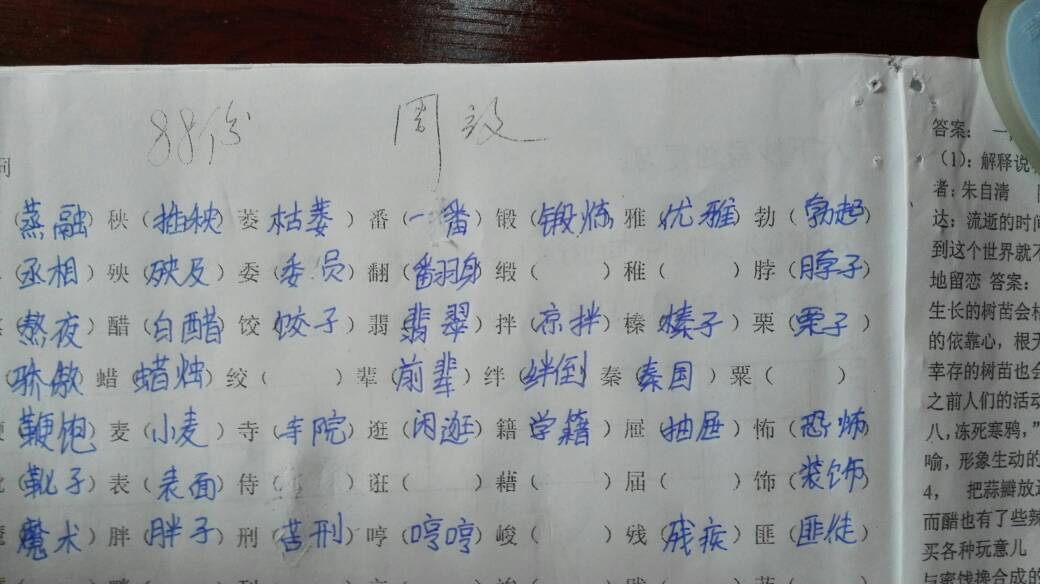 88份 周
词
(蒸融) 秧(推秧) 萎 枯萎) 番(一番) 锻(锻炼 雅 优雅) 勃(勃起)
(丞相) 殃(殃及) 委(委员 翻(翻身 缎( ) 稚( ) 脖(脖子)
(熬夜) 醋(白醋 饺 饺子) 翡 翡翠) 拌(凉拌 榛 榛子) 栗(栗子)
(骄傲 蜡(蜡烛) 绞( ) 辈(前辈) 绊 绊倒 秦(秦国) 粟( )
(鞭炮 麦(小麦) 寺( 院) 逛(闲逛) 籍 学籍) 屉(抽屉) 怖(恐怖
(靴子) 表(表面) 侍( ) 诳( ) 藉( ) 届( ) 饰(装饰
魔(魔术) 胖(胖子) 刑(苦刑) 哼(哼哼) 峻( ) 残(残疾) 匪(匪徒)
答案: 一
(1):解释说
者:朱自清
达:流逝的时间
到这个世界就不
地留恋 答案:
生长的树苗会枯
的依靠心,根无
幸存的树苗也会
之前人们的活动
八,冻死寒鸦,”
喻,形象生动的
4, 把蒜瓣放进
而醋也有了些辣
买各种玩意儿
与蜜饯搀合成的